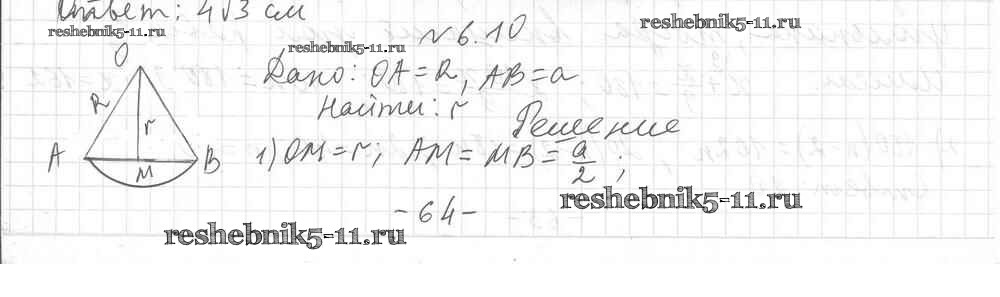 Ответ: 4√3 см
reshebnik5-11.ru
reshebnik5-11.ru
reshebnik5-11.ru
№6.10
O
Дано: OA = R, AB = a
R
Найти: r
r
Решение
A
B
M
1) OM = r; AM = MB = a/2 ;
reshebnik5-11.ru
- 64 -
reshebnik5-11.ru